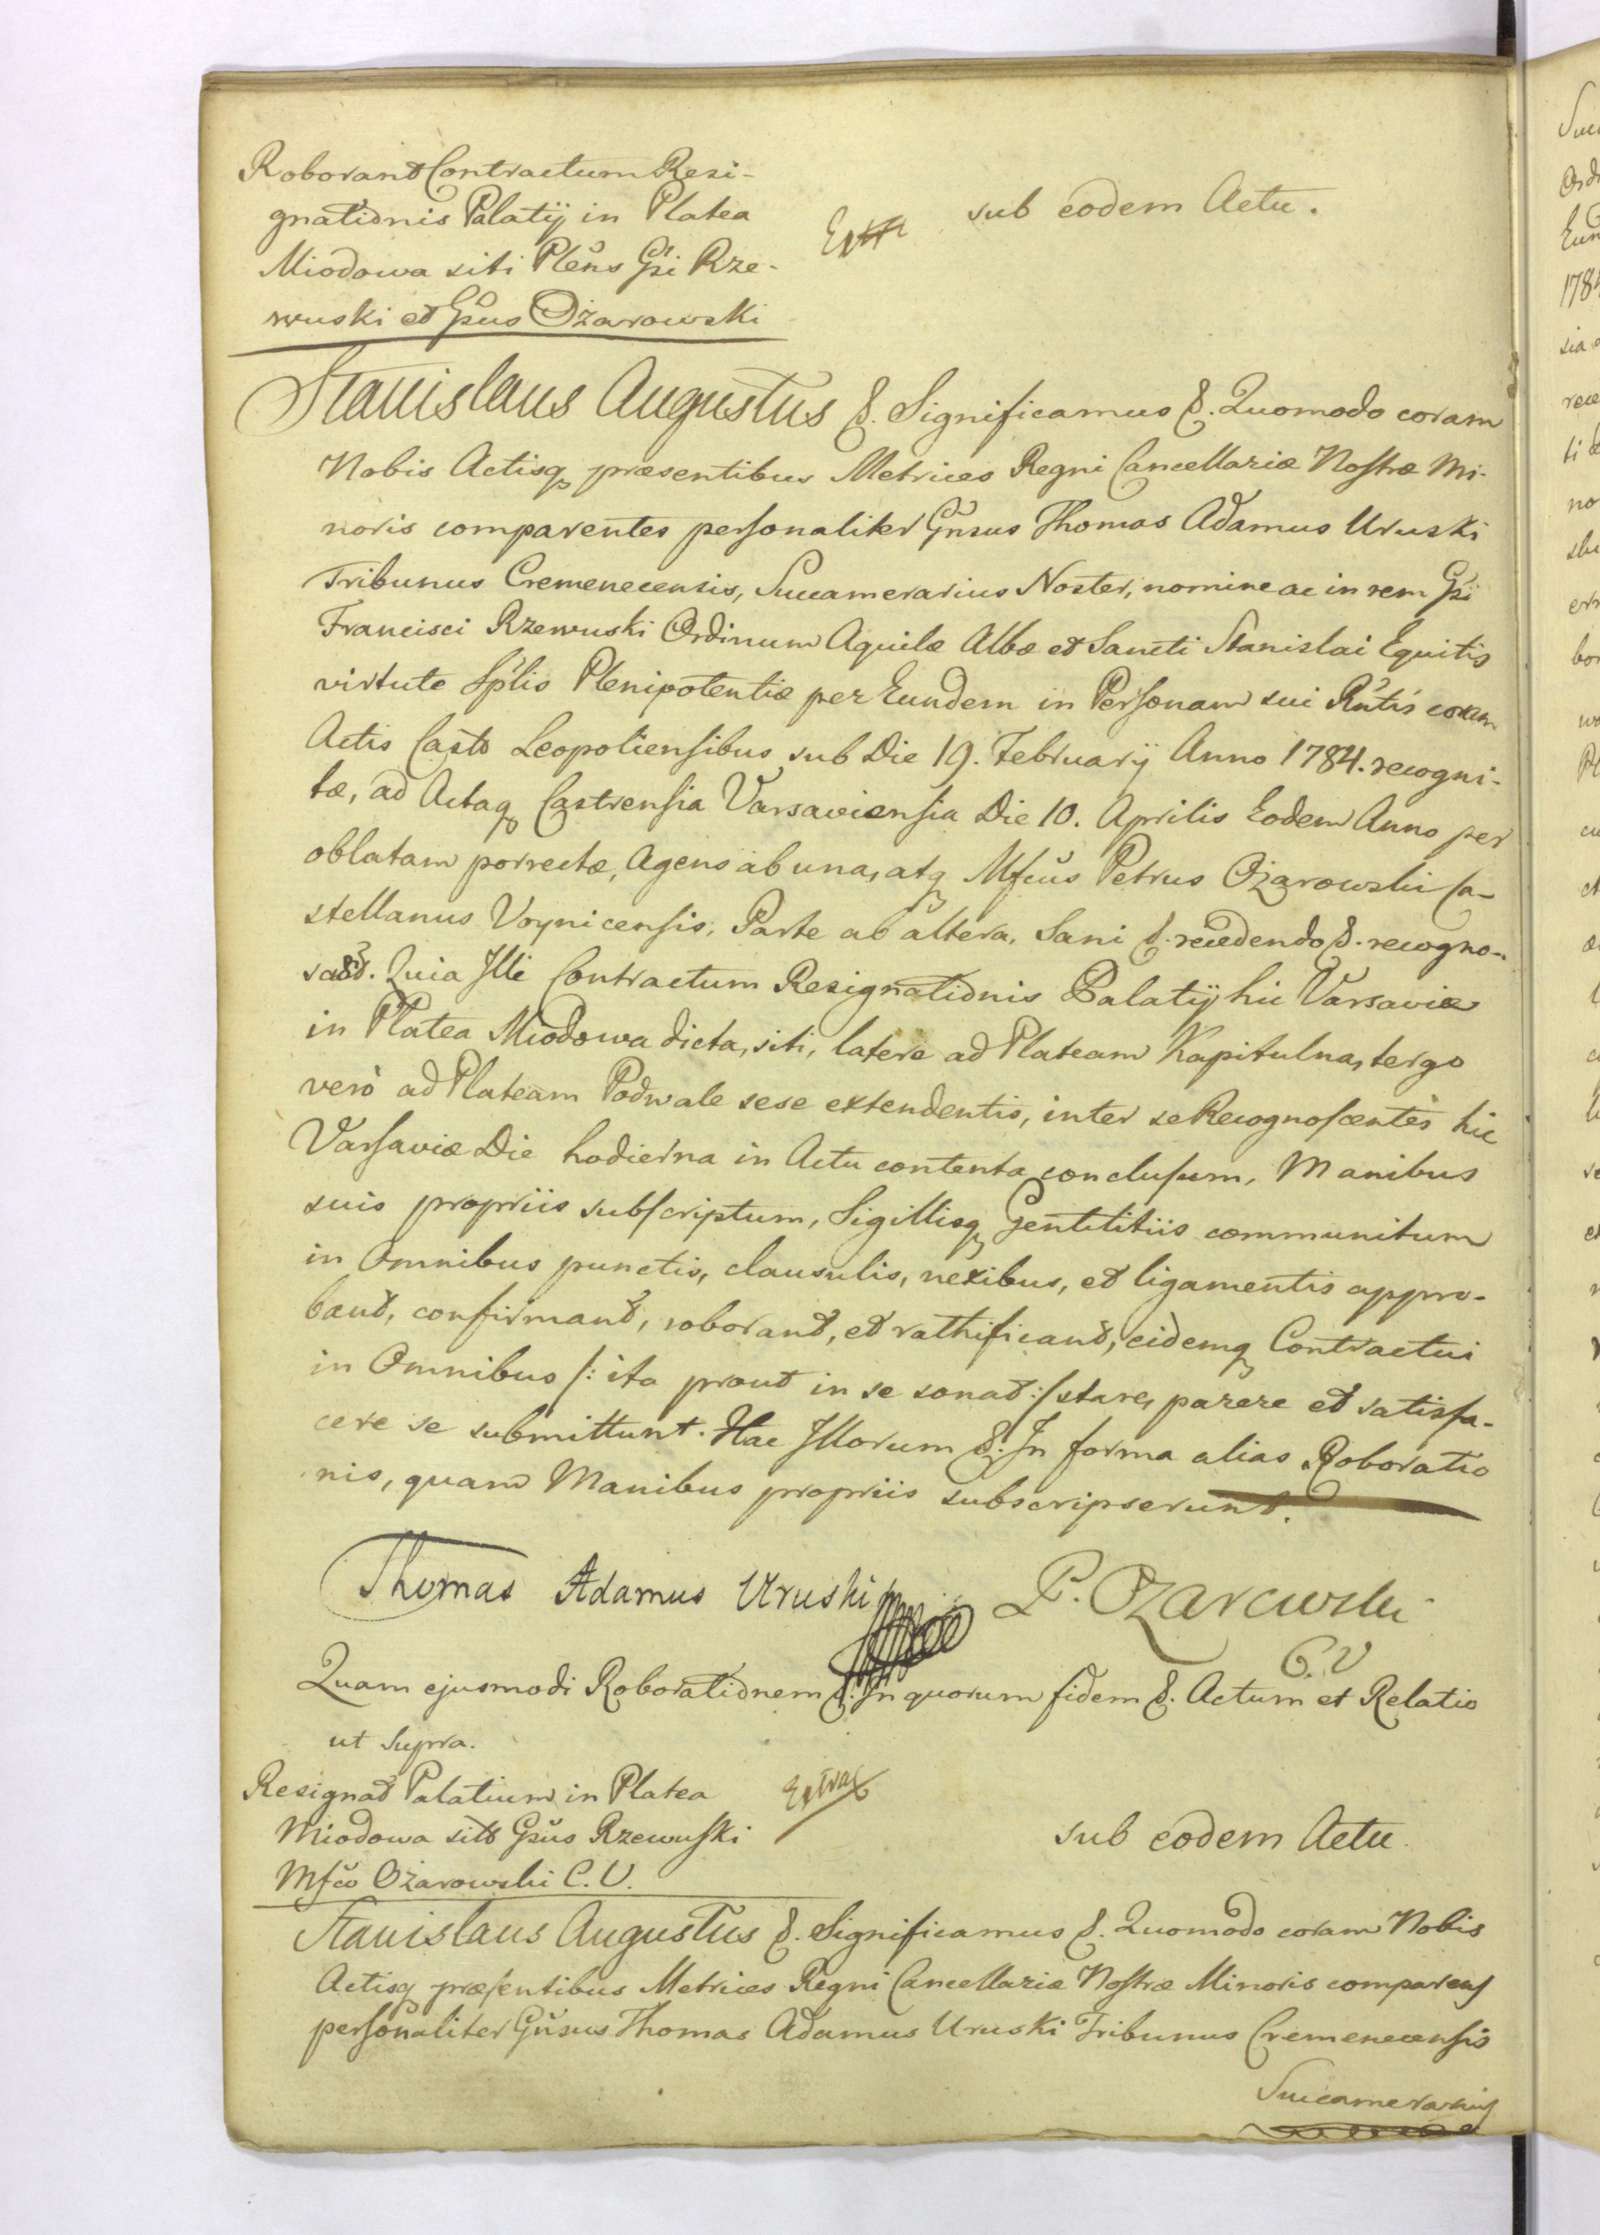 Roborant Contractum Resi-
gnationis Palatij in Platea
Miodowa siti Pleñs Gsi Rze-
wuski et Gsus Ożarowski
Extr
sub eodem Actu.
Stanislaus Augustus &. Significamus &. Quomodo coram
Nobis Actisq præsentibus Metrices Regni Cancellariæ Nostræ Mi-
noris comparentes personaliter Gnsus Thomas Adamus Uruski
Tribunus Cremenecensis, Succamerarius Noster, nomine ac in rem Gsi
Francisci Rzewuski Ordinum Aquilæ Albæ et Sancti Stanislai Equitis
virtute Splis Plenipotentiæ per Eundem in Personam sui Rntis coram
Actis Casts Leopoliensibus sub Die 19. February Anno 1784. recogni-
tæ, ad Actaq Castrensia Varsaviensia Die 10. Aprilis Eodem Anno per
oblatam porrectæ, Agens ab una, atq Mfcus Petrus Ożarowski Ca-
stellanus Voynicensis, Parte ab altera, Sani &. recedendo &. recogno-
Quia Illi Contractum Resignationis Palatij hic Varsaviæ
in Platea Miodowa dicta, siti, latere ad Plateam Kapitulna, tergo
verò ad Plateam Podwale sese extendentis, inter se Recognoscentes hic
Varsaviæ Die hodierna in Actu contenta conclusum, Manibus
suis propriis subscriptum, Sigillisq Gentilitiis communitum
in Omnibus punctis, clausulis, nexibus, et ligamentis appro-
bant, confirmant, roborant, et rathificant, eidemq Contractui
in Omnibus /: ita prout in se sonat :/ stare, parere et satisfa-
cere se submittunt. Hac Illorum &. In forma alias Roboratio
nis, quam Manibus propriis subscripserunt.
Thomas Adamus Uruski
P. Ożarowski
C. V
Quam ejusmodi Roborationem &. In quorum fidem &. Actum et Relatio
ut supra.
Resignat Palatium in Platea
Miodowa sits Gsus Rzewuski
Mfco Ożarowski C. V.
Extrac
sub eodem Actu
Stanislaus Augustus &. Significamus &. Quomodo coram Nobis
Actisq præsentibus Metrices Regni Cancellariæ Nostræ Minoris comparens
personaliter Gnsus Thomas Adamus Uruski Tribunus Cremenecensis
Succamerarius